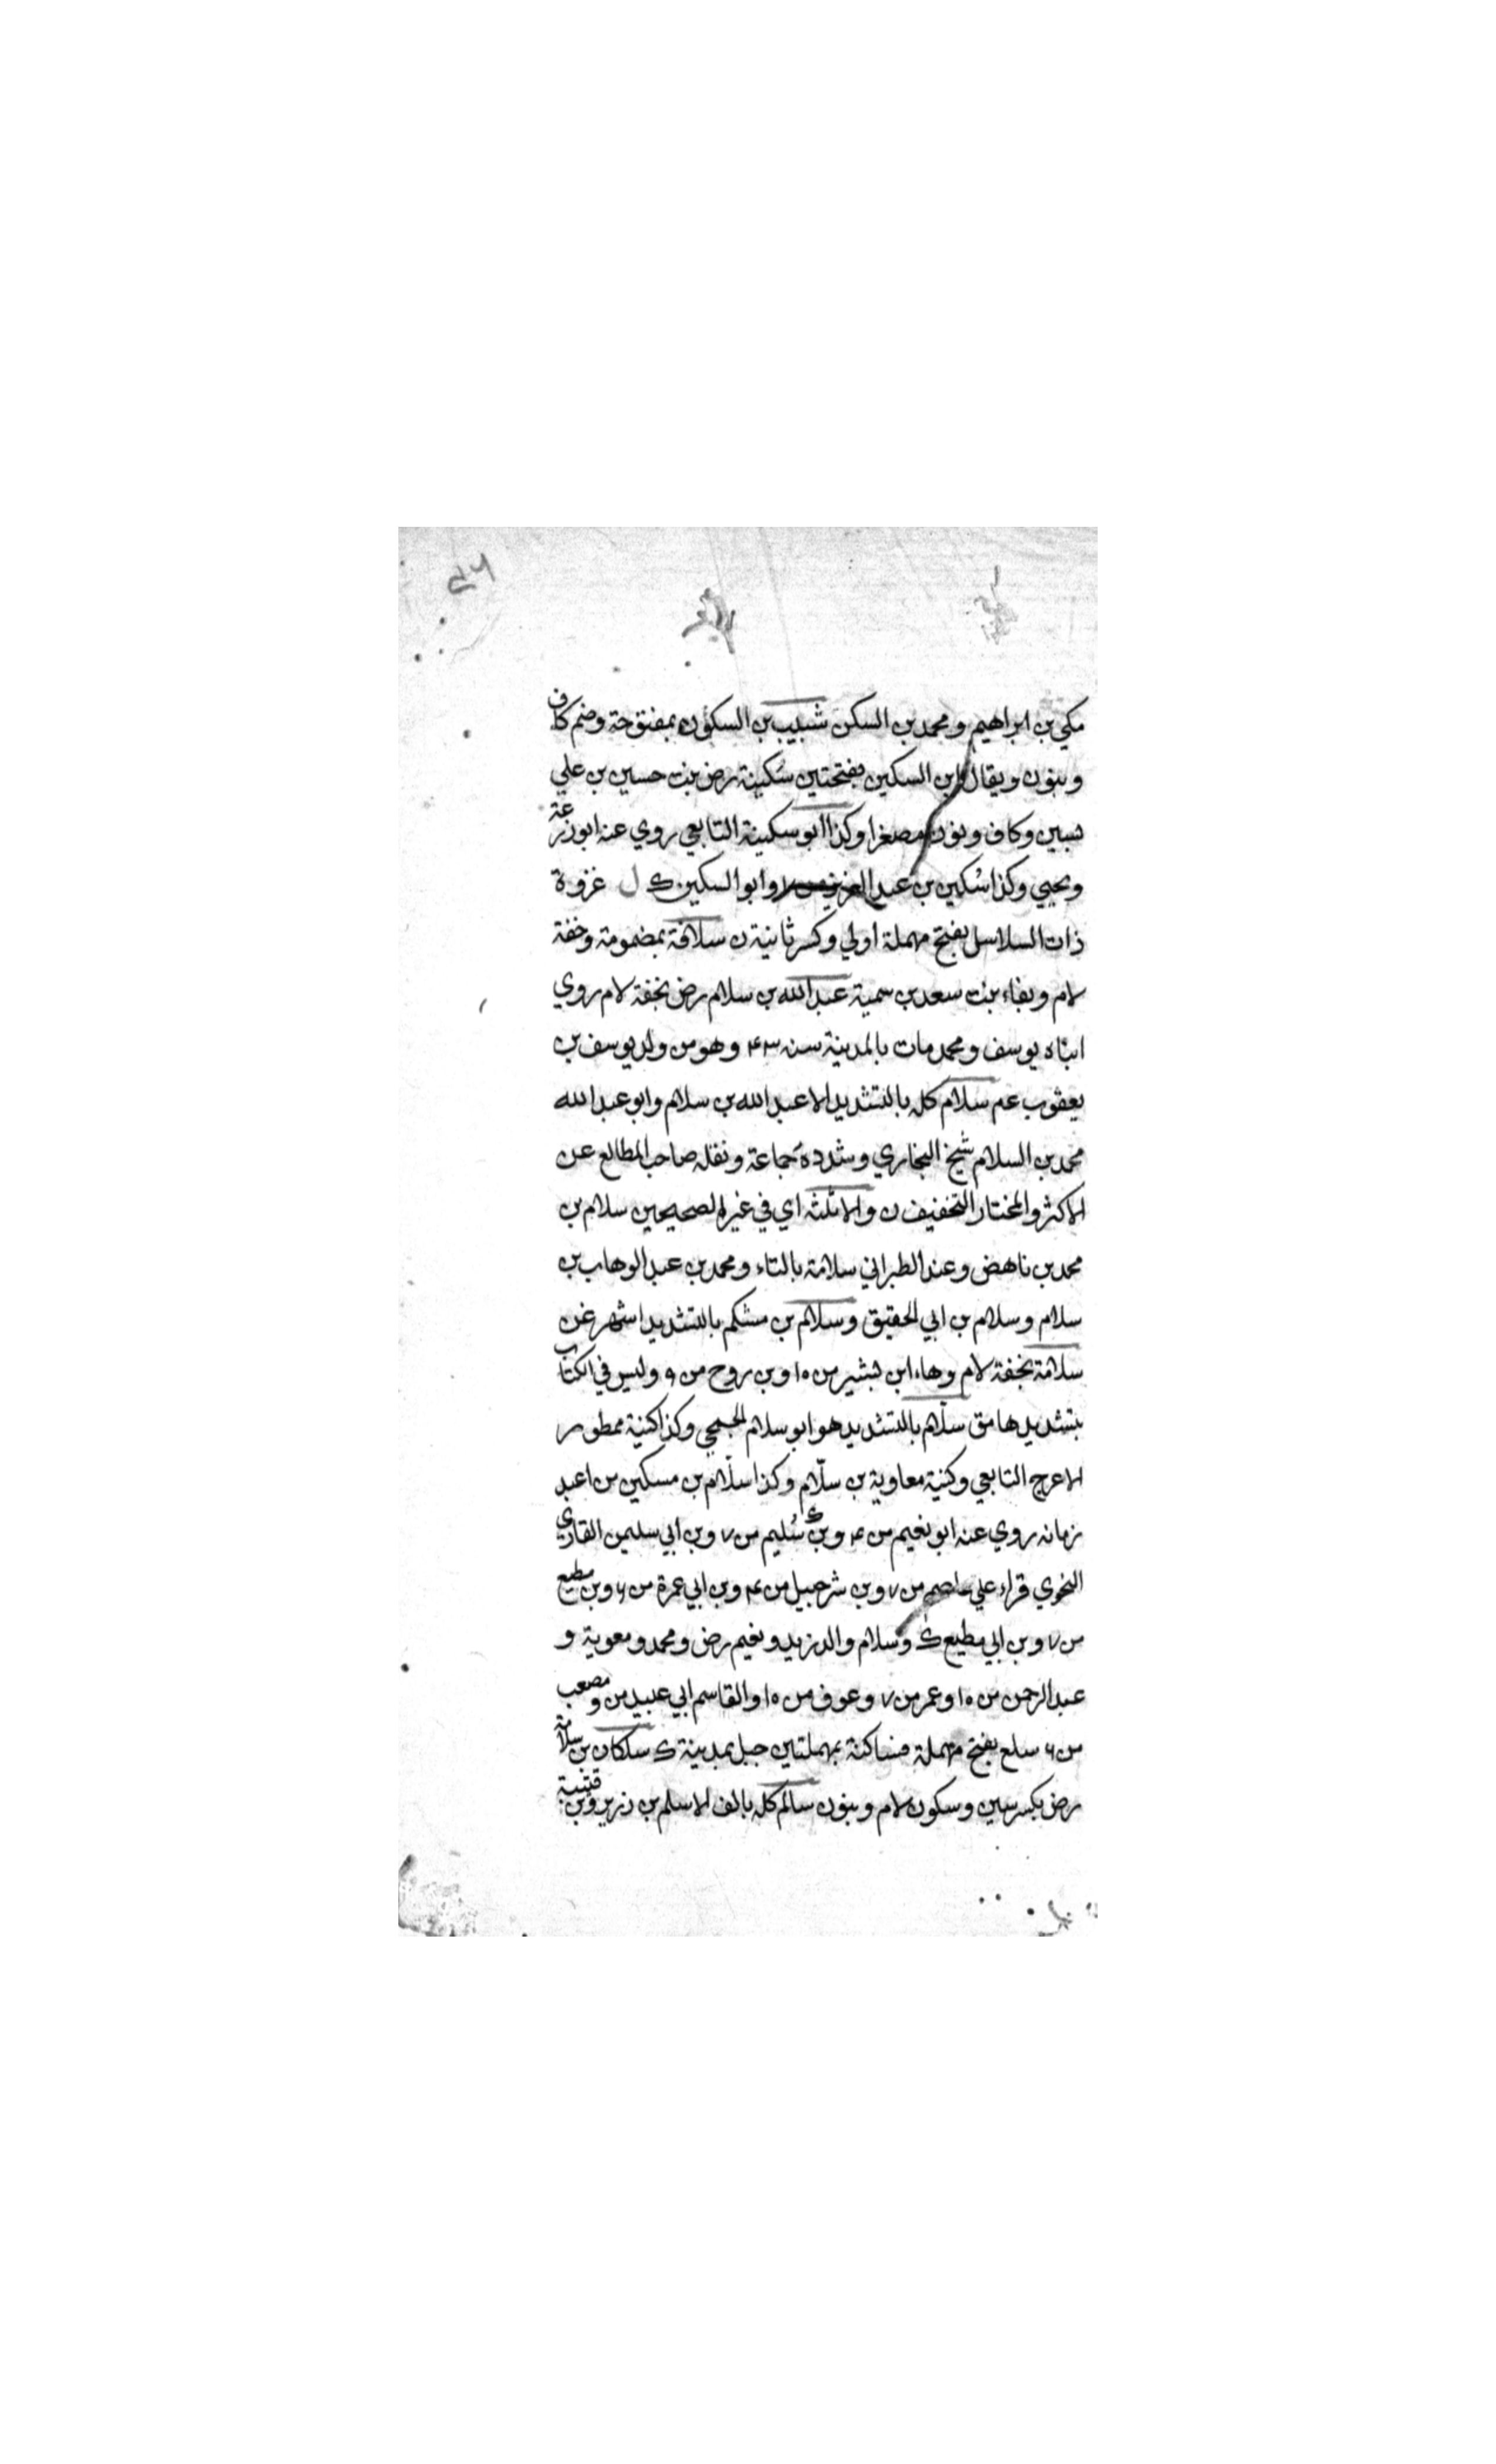 مكي بن ابراهيم و محمد بن السكن شبيب بن السكون بمفتوحة وضم كاف
وبنون ويقال ابن السكين بفتحتين سكينة رض بنت حسين بن علي
بسين وكاف ونون مصغرا وكذا ابو سكينة التابعي روي عنه ابو زرعة
ويحيي وكذا سُكين بن عبد العزيز وابو السكين ك ل غزوة
ذات السلاسل بفتح مهملة اولي وكسر ثانية ن سلافة بمضمومة وخفة
لام وبفاء بنت سعد بن سمية عبد الله بن سلام رض بخفة لام روي
ابناه يوسف ومحمد مات بالمدينة سنه ۴۳ وهو من ولد يوسف بن
يعقوب عم سلام كله بالتشديد الا عبد الله بن سلام وابو عبد الله
محمد بن السلام شيخ البخاري وشدده جماعة ونقله صاحب المطالع عن
الاكثر والمختار التخفيف ن والا ثلثه اي في غير الصحيحين سلام بن
محمد بن ناهض وعند الطبراني سلامة بالتاء ومحمد بن عبد الوهاب بن
سلام وسلام بن ابي الحقيق وسلام بن مشكم بالتشديد اشهر غن
سلامة بخفة لام وهاء ابن بشير من ۱۰ وبن روح من ۹ وليس في الكتاب
بتشديدها مق سلّام بالتشديد هو ابو سلام الجمحي وكذا كنية ممطور
الاعرج التابعي وكنية معاوية بن سلّام وكذا سلّام بن مسكين من اعبد
زمانه روي عنه ابو نعيم من ۴ وبن سُليم من ۷ وبن ابي سليمن القاري
النحوي قراء علي عاصم من ۷ وبن شرحبيل من ۴ وبن ابي عمرة من ۶ وبن مطيع
من ۷ وبن ابي مطيع ك وسلام والد زيد ونعيم رض ومحمد ومعوية و
عبد الرحمن من ۱۰ وعمر من ۷ وعوف من ۱۰ والقاسم ابي عبيد من و مصعب
من ۶ سلع بفتح مهملة فساكنة بمهملتين جبل بمدينة ك سلكان بن سلامة
رض بكسر سين وسكون لام وبنون سالم كله بالف الا سلم بن زرير وبن قتيبة